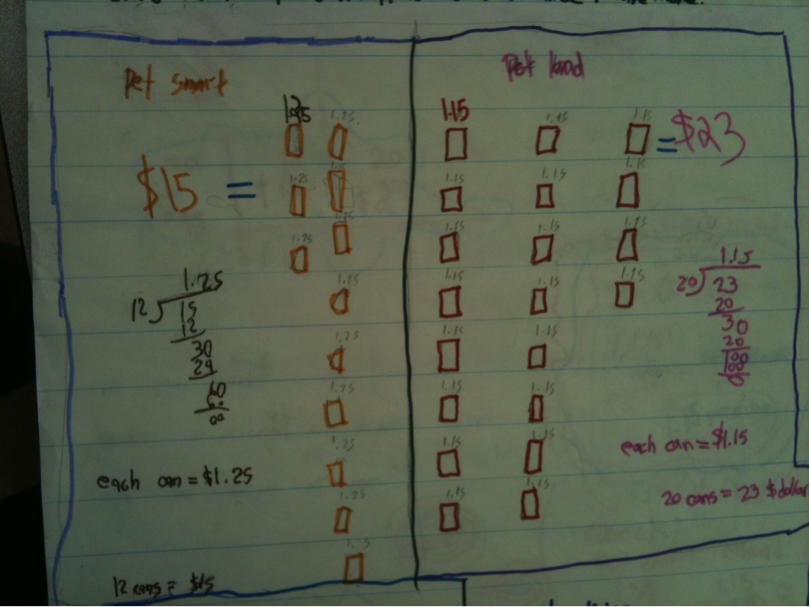 Pet smart
$15 =
1.25
1.25
1.25
1.25
1.25
1.25
1.25
1.25
1.25
1.25
1.25
1.25
12 15
12
30
24
60
60
00
each can = $1.25
12 cans = $15
Pet land
1.15 1.15 1.15
= $23
1.15 1.15 1.15
1.15 1.15 1.15
1.15 1.15 1.15
1.15 1.15
1.15 1.15
1.15 1.15
1.15 1.15
1.15
20 23
20
30
20
100
00
0
each can = $1.15
20 cans = 23 $ dollar